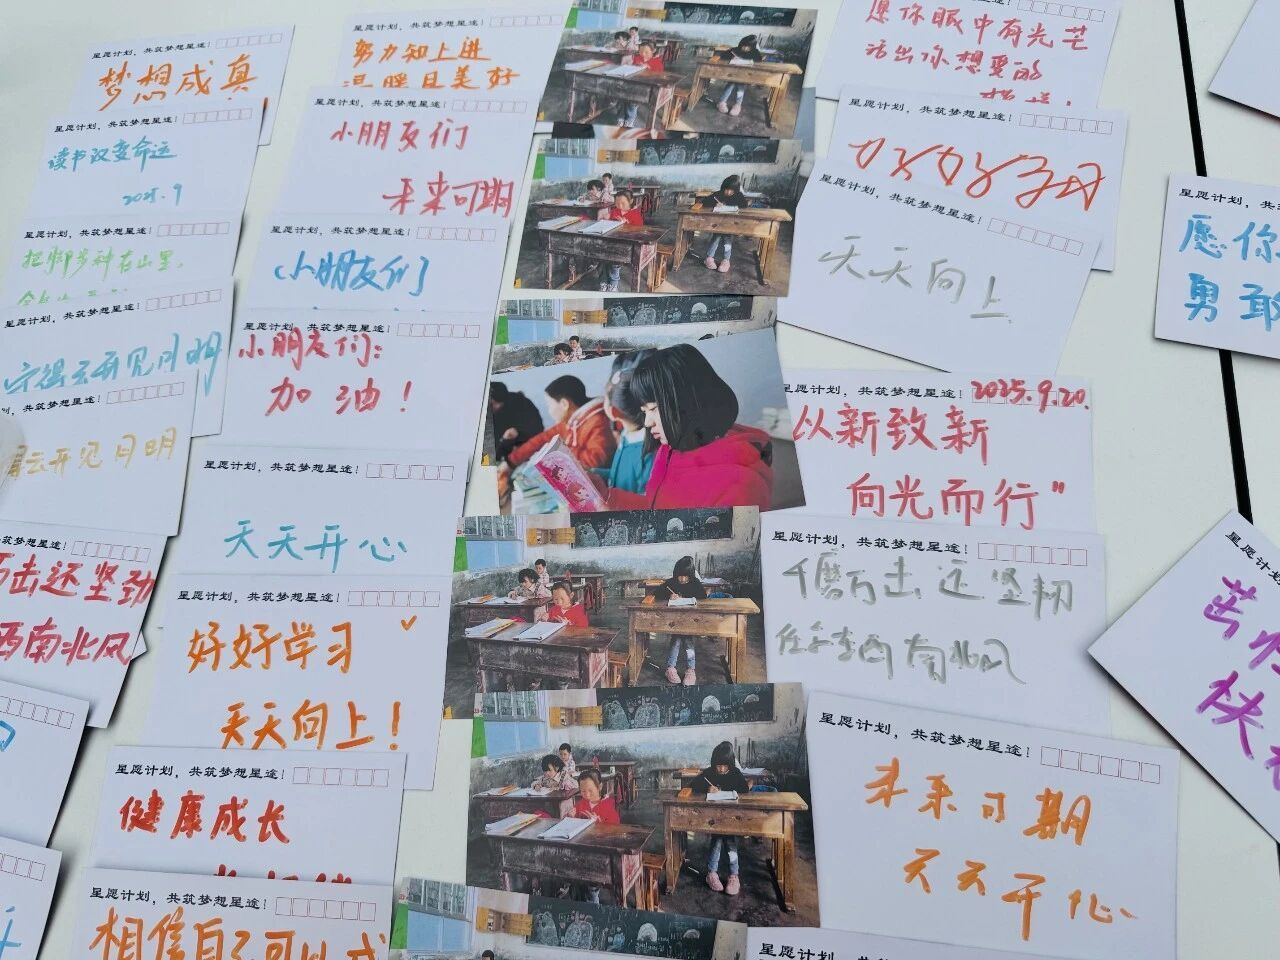 星愿计划，共筑梦想星途！
梦想成真
星愿计划，共筑梦想星途！
读书改变命运
2025.9
星愿计划，共筑梦想星途！
把脚步种在山里，
星愿计划，共筑梦想星途！
守得云开见月明
共筑梦想星途！
云开见月明
共筑梦想星途！
万击还坚劲
西南北风
星愿计划，共筑梦想星途！
努力知上进
温暖且美好
星愿计划，共筑梦想星途！
小朋友们
未来可期
星愿计划，共筑梦想星途！
小朋友们
星愿计划，共筑梦想星途！
小朋友们：
加油！
星愿计划，共筑梦想星途！
天天开心
星愿计划，共筑梦想星途！
好好学习
天天向上！
星愿计划，共筑梦想星途！
健康成长
星愿计划，共筑梦想星途！
相信自己可以
愿你眼中有光芒
活出你想要的
星愿计划，共筑梦想星途！
好好学习
星愿计划，共筑梦想星途！
天天向上
星愿计划，共筑梦想星途！
2025.9.20.
从新致新
向光而行”
星愿计划，共筑梦想星途！
千磨万击还坚韧
任尔东西南北风
星愿计划，共筑梦想星途！
未来可期
天天开心
星愿计划，共筑梦想星途！
星愿计划，共
愿你
勇敢
星愿计划，